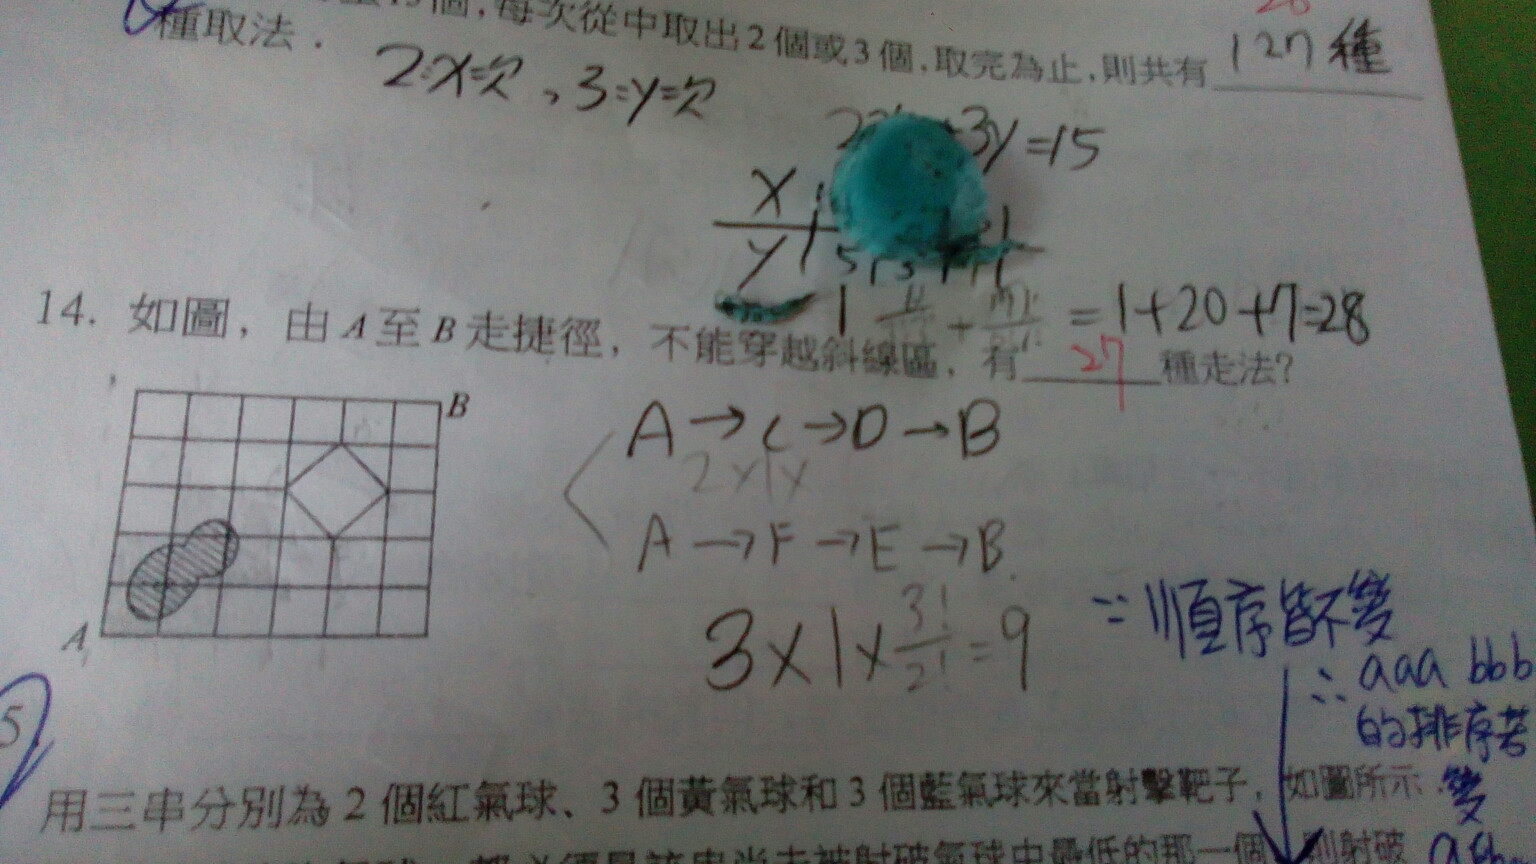 個,每次從中取出2個或3個,取完為止,則共有 127種
種取法.
2=x=次,3=y=次
3y=15
x
y
1 + = 1+20+7=28
14. 如圖,由A至B走捷徑,不能穿越斜線區,有 27 種走法?
B
A→C→D→B
2×1×
A→F→E→B
3×1×3!/2!=9
A
∵順序皆不變
∴aaa bbb
的排序若
變
5
用三串分別為2個紅氣球、3個黃氣球和3個藍氣球來當射擊靶子,如圖所示.